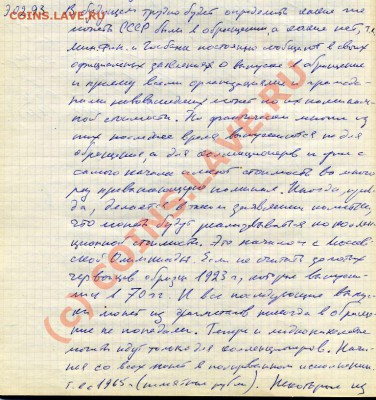 COINS.LAY.RU
7.02.93 В будущем трудно будет определить какие же
монеты СССР были в обращении, а какие нет, т.к.
Минфин. и Госбанк постоянно сообщают в своих
официальных заявлениях о выпуске в обращение
и приёму всеми организациями и
новых монет по их номиналь-
ной стоимости. Но фактически многие из
них последнее время выпускаются не для
обращения, а для коллекционеров и уже с
самого начала имеют стоимость во много
раз превышающую номинал. Иногда, прав-
да, делается в таких заявлениях
что монеты будут реализовываться по коллек-
ционной стоимости. Это началось с москов-
ской Олимпиады. Если не считать золотых
червонцев образца 1923 г., которые выпуска-
лись в 70 гг. И все последующие выпус-
ки монет из драгметаллов никогда в обраще-
ние не попадали. Теперь и медноникелевые
монеты идут только для коллекционеров. Начи-
ная со всех монет в полированном исполнении
т.е. с 1965 г. (памятные рубли). Некоторые из
(c) COINS.LAY.RU